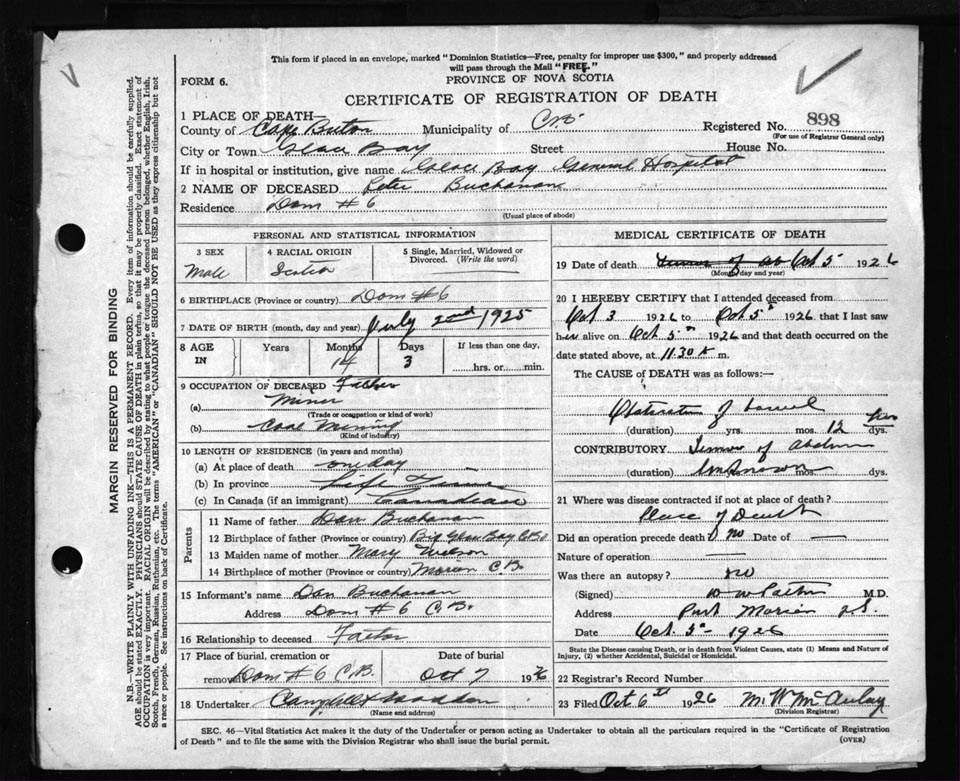 This form if placed in an envelope, marked "Dominion Statistics—Free, penalty for improper use $300," and properly addressed
will pass through the Mail "FREE."
FORM 6.
PROVINCE OF NOVA SCOTIA
CERTIFICATE OF REGISTRATION OF DEATH
1 PLACE OF DEATH—
County of Cape Breton Municipality of C.B. Registered No. 898
(For use of Registrar General only)
City or Town Glace Bay Street House No.
If in hospital or institution, give name Glace Bay General Hospital
2 NAME OF DECEASED Peter Buchanan
Residence Dom # 6
(Usual place of abode)
PERSONAL AND STATISTICAL INFORMATION
3 SEX
Male
4 RACIAL ORIGIN
Scotch
5 Single, Married, Widowed or Divorced. (Write the word)
6 BIRTHPLACE (Province or country) Dom # 6
7 DATE OF BIRTH (month, day and year) July 2nd 1925
8 AGE IN
Years Months Days If less than one day,
14 3 hrs. or min.
9 OCCUPATION OF DECEASED Father
(a) Miner
(Trade or occupation or kind of work)
(b) Coal Mining
(Kind of industry)
10 LENGTH OF RESIDENCE (in years and months)
(a) At place of death one day
(b) In province Life Time
(c) In Canada (if an immigrant) Canadian
Parents
11 Name of father Dan Buchanan
12 Birthplace of father (Province or country) Big Glace Bay C.B.
13 Maiden name of mother Mary
14 Birthplace of mother (Province or country) Morien C.B.
15 Informant's name Dan Buchanan
Address Dom # 6 C.B.
16 Relationship to deceased Father
17 Place of burial, cremation or Date of burial
removal Dom # 6 C.B. Oct 7 1926
18 Undertaker
(Name and address)
MEDICAL CERTIFICATE OF DEATH
19 Date of death Oct 5 1926
(Month, day and year)
20 I HEREBY CERTIFY that I attended deceased from
Oct 3 1926 to Oct 5 1926 that I last saw
him alive on Oct 5 1926 and that death occurred on the
date stated above, at 11.30 A m.
The CAUSE of DEATH was as follows:—
Obstruction of bowel
(duration) yrs. mos. 12 dys.
CONTRIBUTORY Tumor of Abdomen
(duration) Unknown mos. dys.
21 Where was disease contracted if not at place of death?
Place of Death
Did an operation precede death? no Date of —
Nature of operation —
Was there an autopsy? no
(Signed) M.D.
Address Port Morien N.S.
Date Oct. 5 1926
State the Disease causing Death, or in death from Violent Causes, state (1) Means and Nature of
Injury, (2) whether Accidental, Suicidal or Homicidal.
22 Registrar's Record Number
23 Filed Oct 6th 1926 M. W. McAulay
(Division Registrar)
SEC. 46—Vital Statistics Act makes it the duty of the Undertaker or person acting as Undertaker to obtain all the particulars required in the "Certificate of Registration
of Death" and to file the same with the Division Registrar who shall issue the burial permit. (OVER)
MARGIN RESERVED FOR BINDING
N.B.—WRITE PLAINLY, WITH UNFADING INK—THIS IS A PERMANENT RECORD. Every item of information should be carefully supplied.
AGE should be stated EXACTLY. PHYSICIANS should STATE CAUSE OF DEATH in plain terms, so that it may be properly classified. Exact statement of
OCCUPATION is very important. RACIAL ORIGIN will be described by stating to what people or tongue the deceased person belonged, whether English, Irish,
Scotch, French, German, Russian, Ruthenian, etc. The terms "AMERICAN" or "CANADIAN" SHOULD NOT BE USED as they express citizenship but not
a race or people. See instructions on back of Certificate.